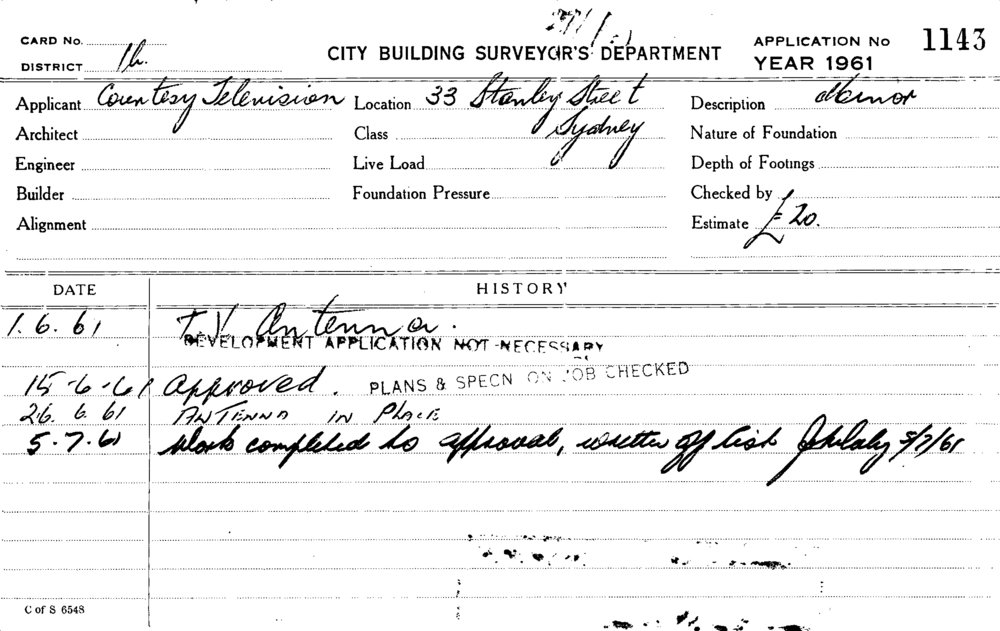 CARD No.
DISTRICT 1b.
CITY BUILDING SURVEYOR'S DEPARTMENT
APPLICATION No 1143
YEAR 1961
Applicant Courtesy Television Location 33 Stanley Street Description Minor
Architect Class Sydney Nature of Foundation
Engineer Live Load Depth of Footings
Builder Foundation Pressure Checked by
Alignment Estimate £20.
DATE HISTORY
1.6.61 T.V Antenna.
DEVELOPMENT APPLICATION NOT NECESSARY
15-6-61 Approved. PLANS & SPECN ON JOB CHECKED
26.6.61 ANTENNA IN PLACE
5.7.61 Work completed to approval, written off list 5/7/61
C of S 6548